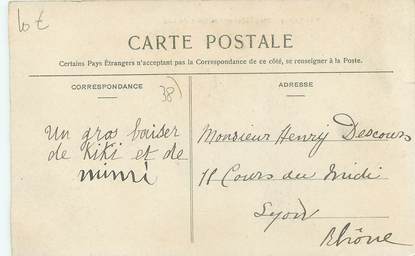 10 €
CARTE POSTALE
Certains Pays Étrangers n'acceptant pas la Correspondance de ce côté, se renseigner à la Poste.
CORRESPONDANCE
38)
ADRESSE
Un gros baiser
de Kiki et de
mimi
Monsieur Henry Descours
11 Cours du Midi
Lyon
Rhône